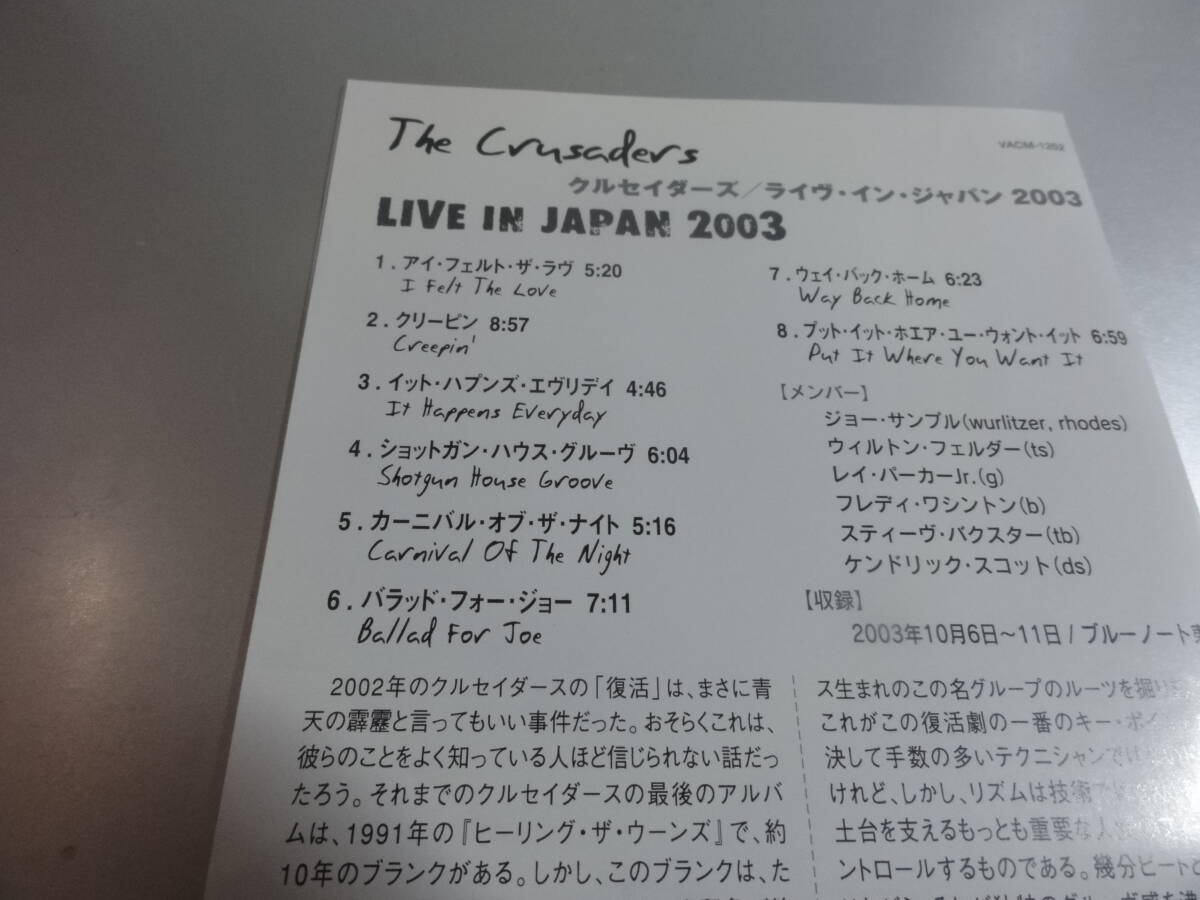 The Crusaders
VACM-1202
クルセイダーズ/ライヴ・イン・ジャパン 2003
LIVE IN JAPAN 2003
1. アイ・フェルト・ザ・ラヴ 5:20
I Felt The Love
2. クリーピン 8:57
Creepin'
3. イット・ハプンズ・エヴリデイ 4:46
It Happens Everyday
4. ショットガン・ハウス・グルーヴ 6:04
Shotgun House Groove
5. カーニバル・オブ・ザ・ナイト 5:16
Carnival Of The Night
6. バラッド・フォー・ジョー 7:11
Ballad For Joe
7. ウェイ・バック・ホーム 6:23
Way Back Home
8. プット・イット・ホエア・ユー・ウォント・イット 6:59
Put It Where You Want It
【メンバー】
ジョー・サンプル(wurlitzer, rhodes)
ウィルトン・フェルダー(ts)
レイ・パーカーJr.(g)
フレディ・ワシントン(b)
スティーヴ・バクスター(tb)
ケンドリック・スコット(ds)
【収録】
2003年10月6日〜11日 / ブルーノート
2002年のクルセイダースの「復活」は、まさに青
天の霹靂と言ってもいい事件だった。おそらくこれは、
彼らのことをよく知っている人ほど信じられない話だっ
たろう。それまでのクルセイダースの最後のアルバ
ムは、1991年の『ヒーリング・ザ・ウーンズ』で、約
10年のブランクがある。しかし、このブランクは、た
ス生まれのこの名グループのルーツを掘り
これがこの復活劇の一番のキー・ポイ
決して手数の多いテクニシャンでは
けれど、しかし、リズムは技術
土台を支えるもっとも重要な人
ントロールするものである。幾分ビート